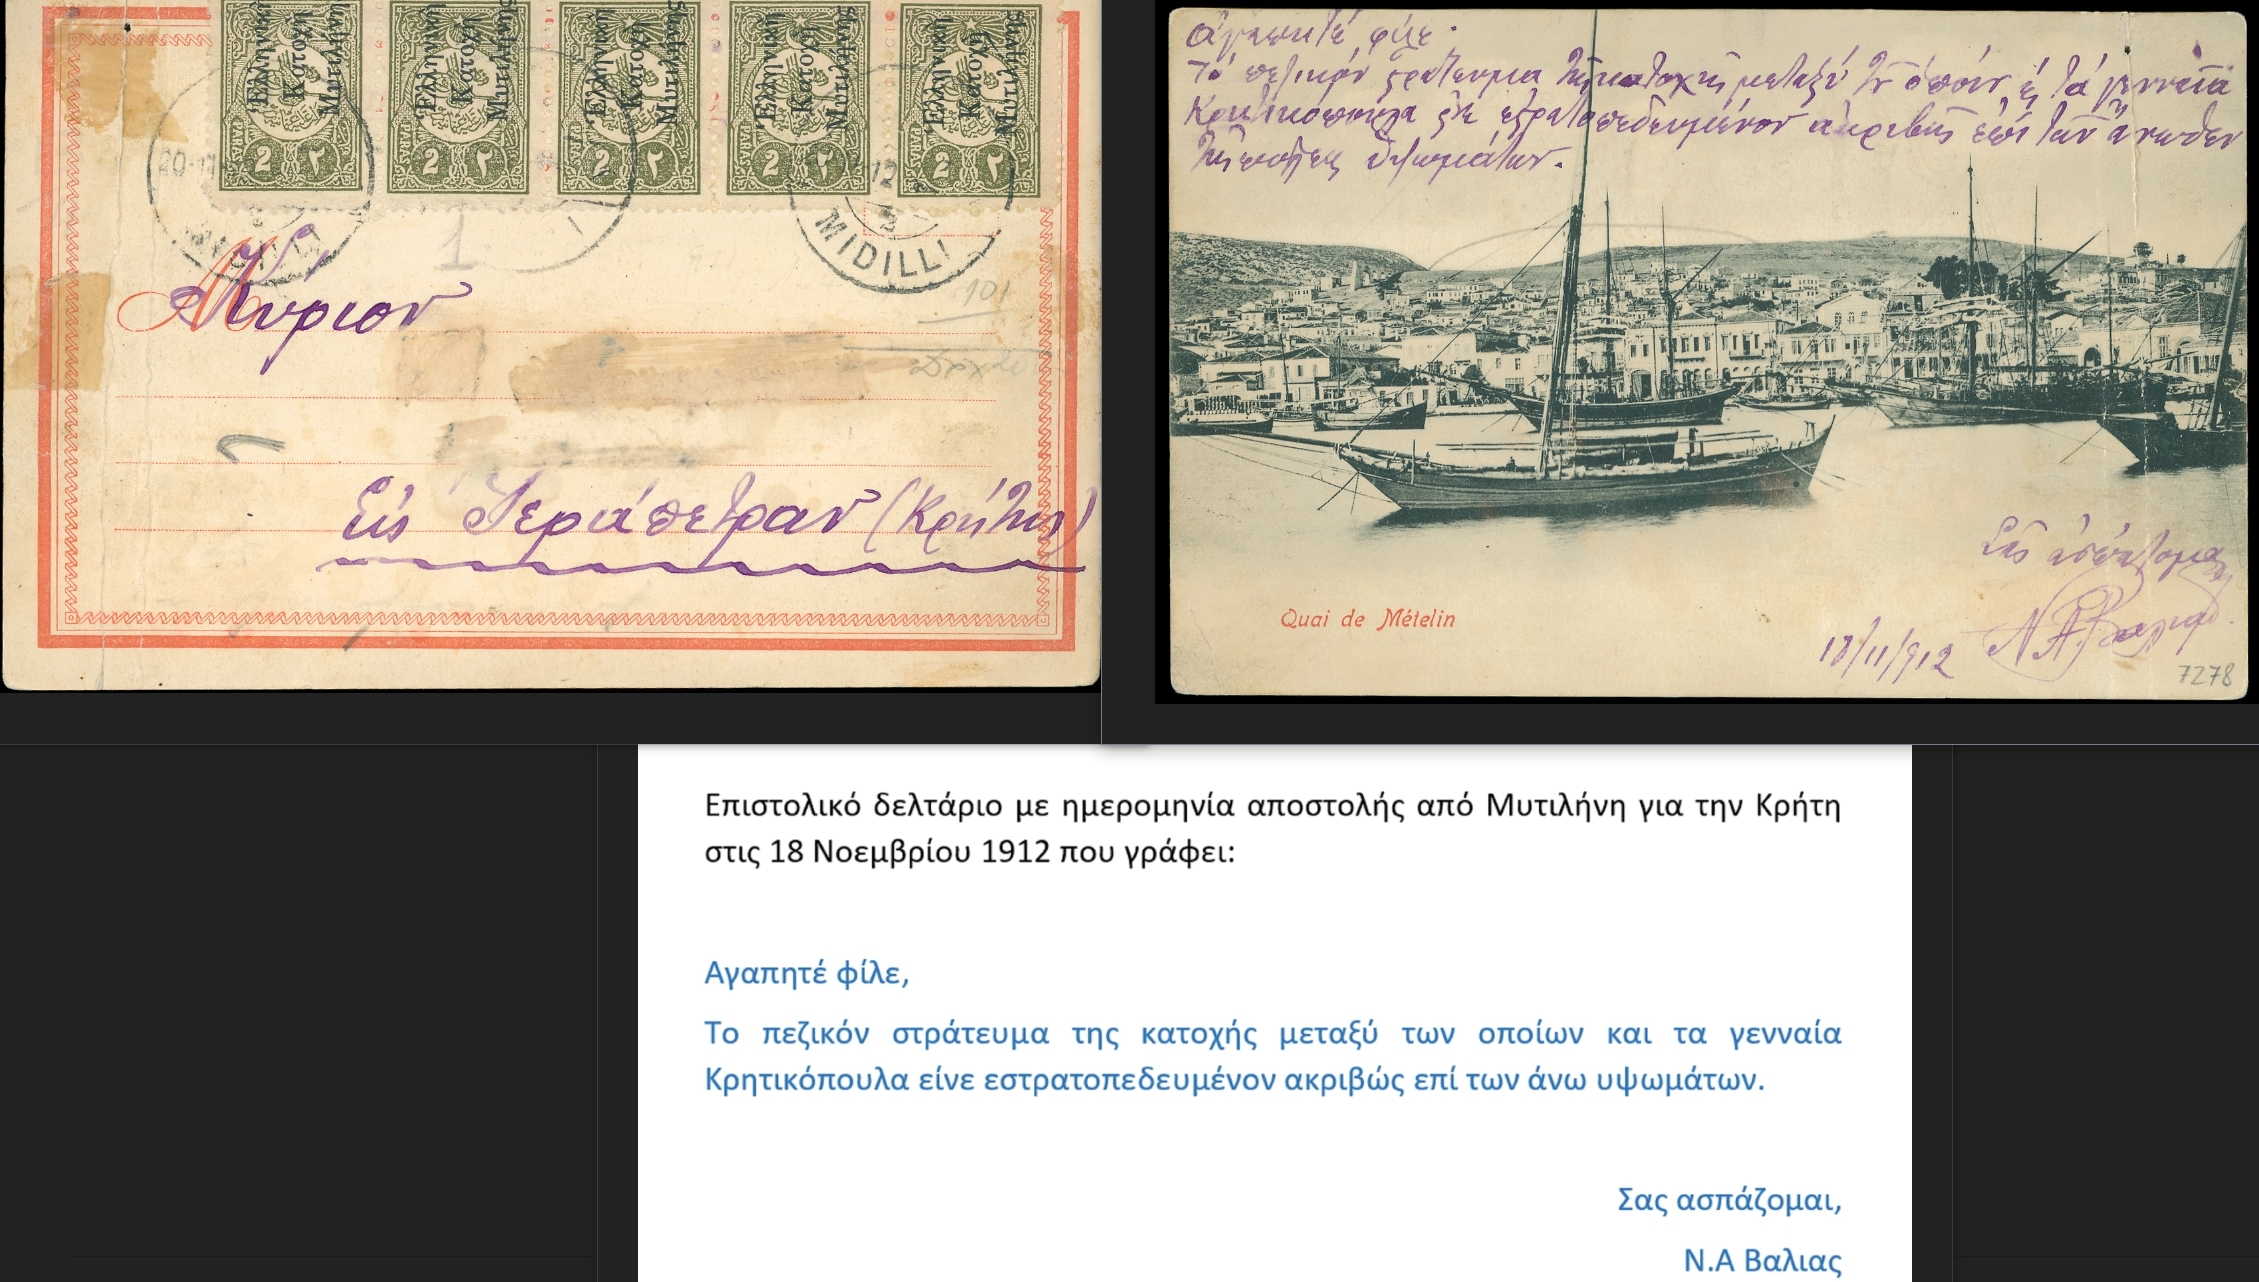 Ἑλληνική Κατοχή Μυτιλήνης
Ἑλληνική Κατοχή Μυτιλήνης
Ἑλληνική Κατοχή Μυτιλήνης
Ἑλληνική Κατοχή Μυτιλήνης
Ἑλληνική Κατοχή Μυτιλήνης
2 PARAS ٢
2 PARAS ٢
2 PARAS ٢
2 PARAS ٢
2 PARAS ٢
MIDILLI
MIDILLI
1
101
Κύριον
Εἰς Ἱεράπετραν (Κρήτης)
ἀγαπητέ φίλε.
Τό πεζικόν στράτευμα τῆς κατοχῆς μεταξύ τῶν ὁποίων κ τά γενναῖα
Κρητικόπουλα εἶνε ἐστρατοπεδευμένον ἀκριβῶς ἐπί τῶν ἄνωθεν
τῆς πόλεως ὑψωμάτων.
Σᾶς ἀσπάζομαι
Quai de Mételin
18/11/912
7278
Επιστολικό δελτάριο με ημερομηνία αποστολής από Μυτιλήνη για την Κρήτη
στις 18 Νοεμβρίου 1912 που γράφει:
Αγαπητέ φίλε,
Το πεζικόν στράτευμα της κατοχής μεταξύ των οποίων και τα γενναία
Κρητικόπουλα είνε εστρατοπεδευμένον ακριβώς επί των άνω υψωμάτων.
Σας ασπάζομαι,
Ν.Α Βαλιας